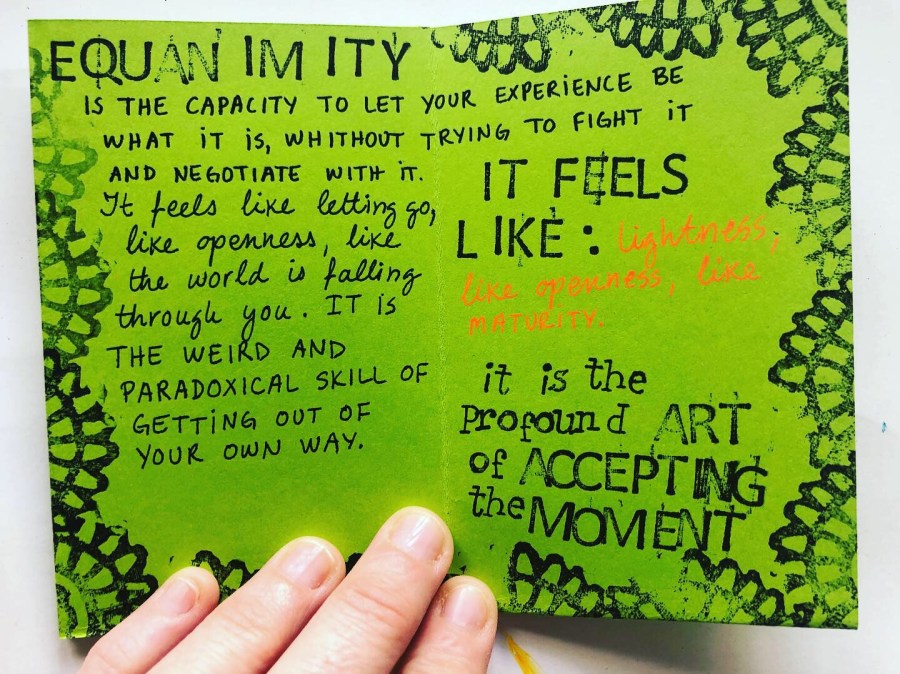 EQUANIMITY
IS THE CAPACITY TO LET YOUR EXPERIENCE BE
WHAT iT iS, WHITHOUT TRYING TO FIGHT iT
AND NEGOTIATE WITH iT.
It feels like letting go,
like openness, like
the world is falling
through you. IT iS
THE WEIRD AND
PARADOXICAL SKILL OF
GETTiNG OUT OF
YOUR OWN WAY.
IT FEELS
LIKE: lightness,
like openness, like
MATURITY.
it is the
Profound ART
of ACCEPTING
the MOMENT